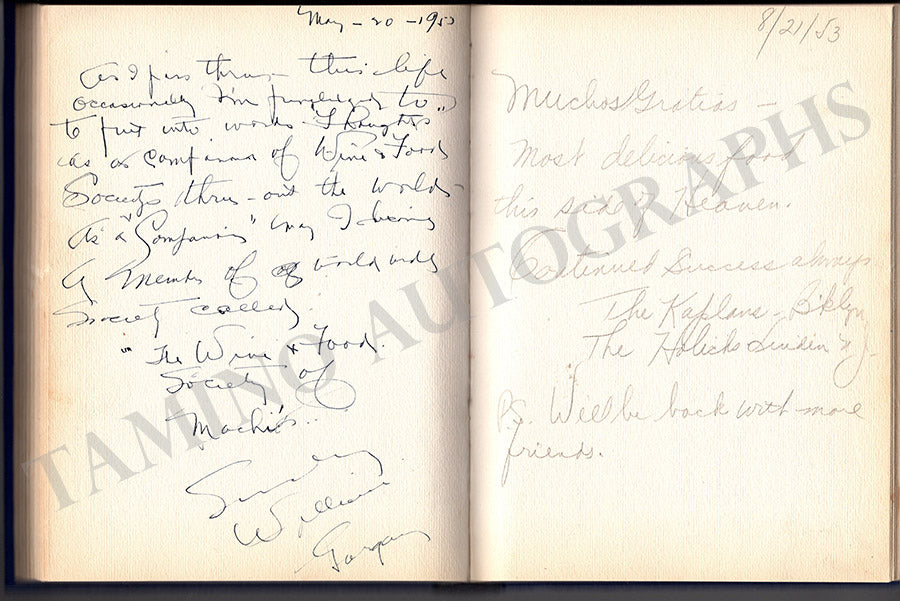 May - 20 - 1953
As I pass thru - this life
occasionally I'm privileged to
to put into words "Thoughts"
as a companion of Wine & Food
Society thru - out the world -
As a "Companion" may I being
a member of world wide
Society called
" The Wine & Food
Society of
Sincerely
William
Gargan
8/21/53
Muchos Gratias -
Most delicious food
this side of Heaven.
Continued Success always
The Kaplans - Bklyn
The Holicks Linden NJ.
P.S. Will be back with more
friends.
TAMINO AUTOGRAPHS